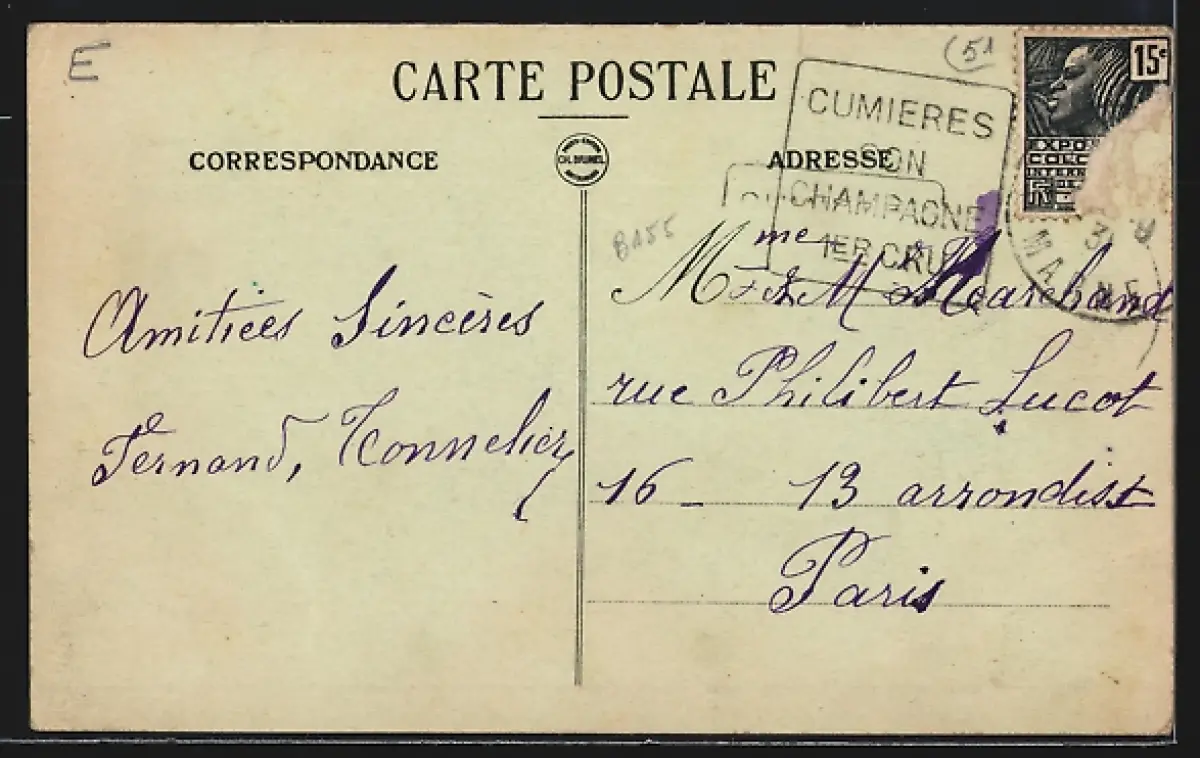 E
(51
CARTE POSTALE
15c
CUMIERES
SON
CHAMPAGNE
1ER CRU
CORRESPONDANCE
CH. BRUNEL
ADRESSE
EXPO
COLO
INTERN
B155
31
MARNE
Mme & M Marchand
rue Philibert Lucot
16 - 13 arrondist
Paris
Amitiées Sincères
Fernand, Tonnelier